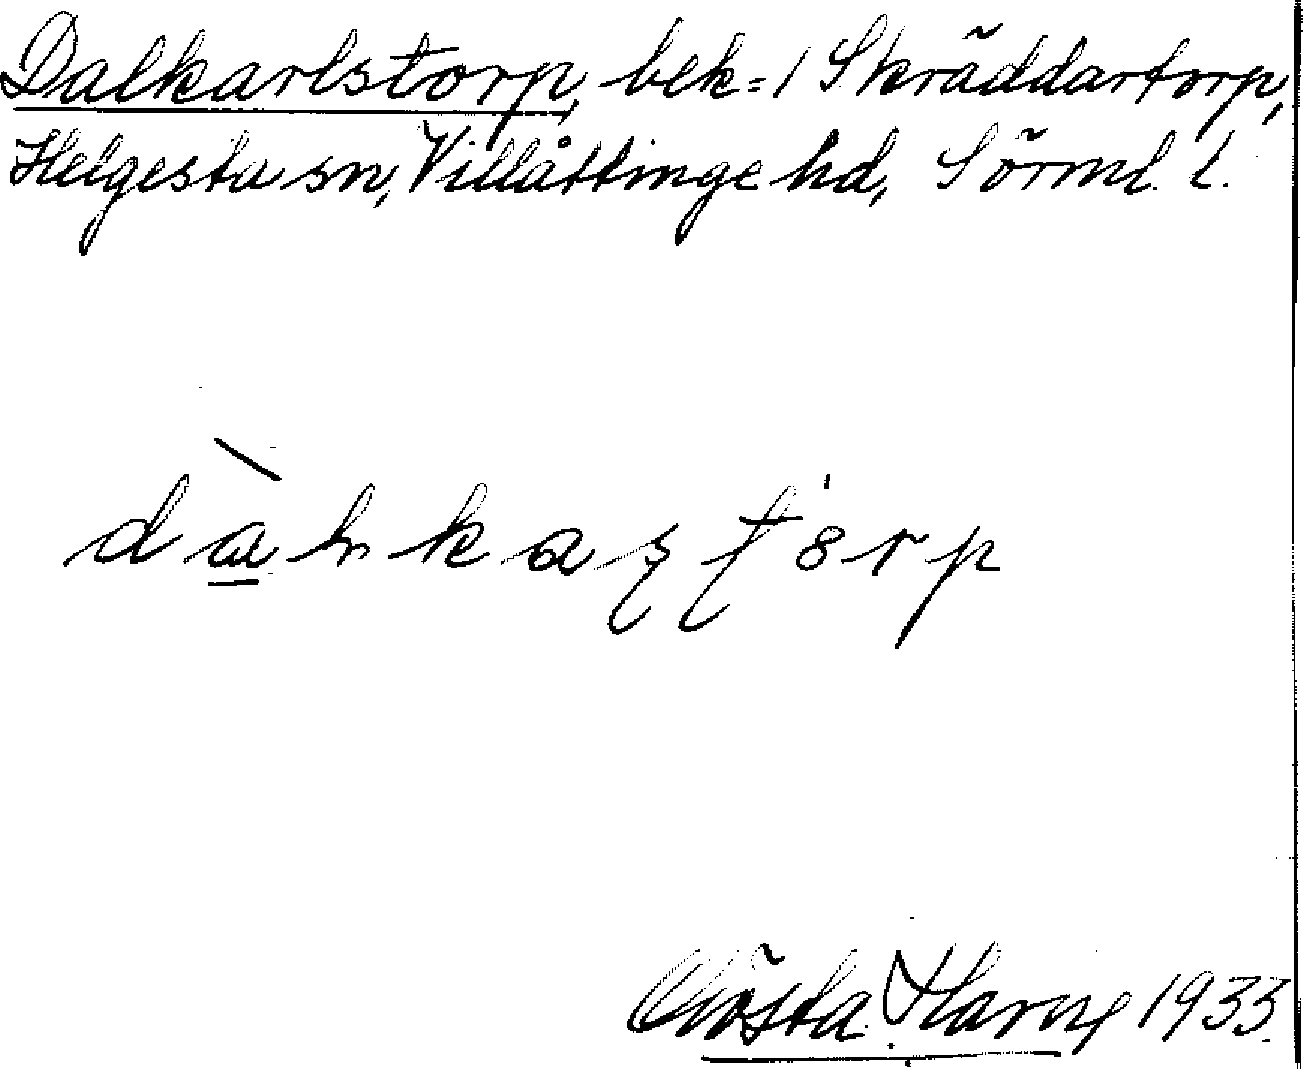 Dalkarlstorp, bek = / Skräddartorp,
Helgesta sn, Villåttinge hd, Sörml. l.
dàhkaʂʈörp
Gösta 1933.